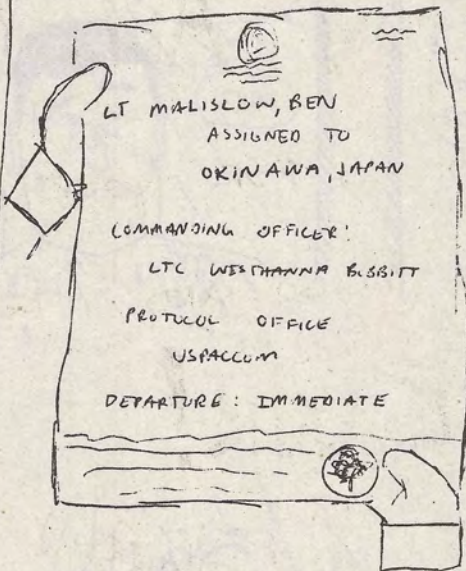 LT MALISLOW, BEN
ASSIGNED TO
OKINAWA, JAPAN
COMMANDING OFFICER:
LTC WESTHANNA BIBBITT
PROTOCOL OFFICE
USPACCOM
DEPARTURE: IMMEDIATE